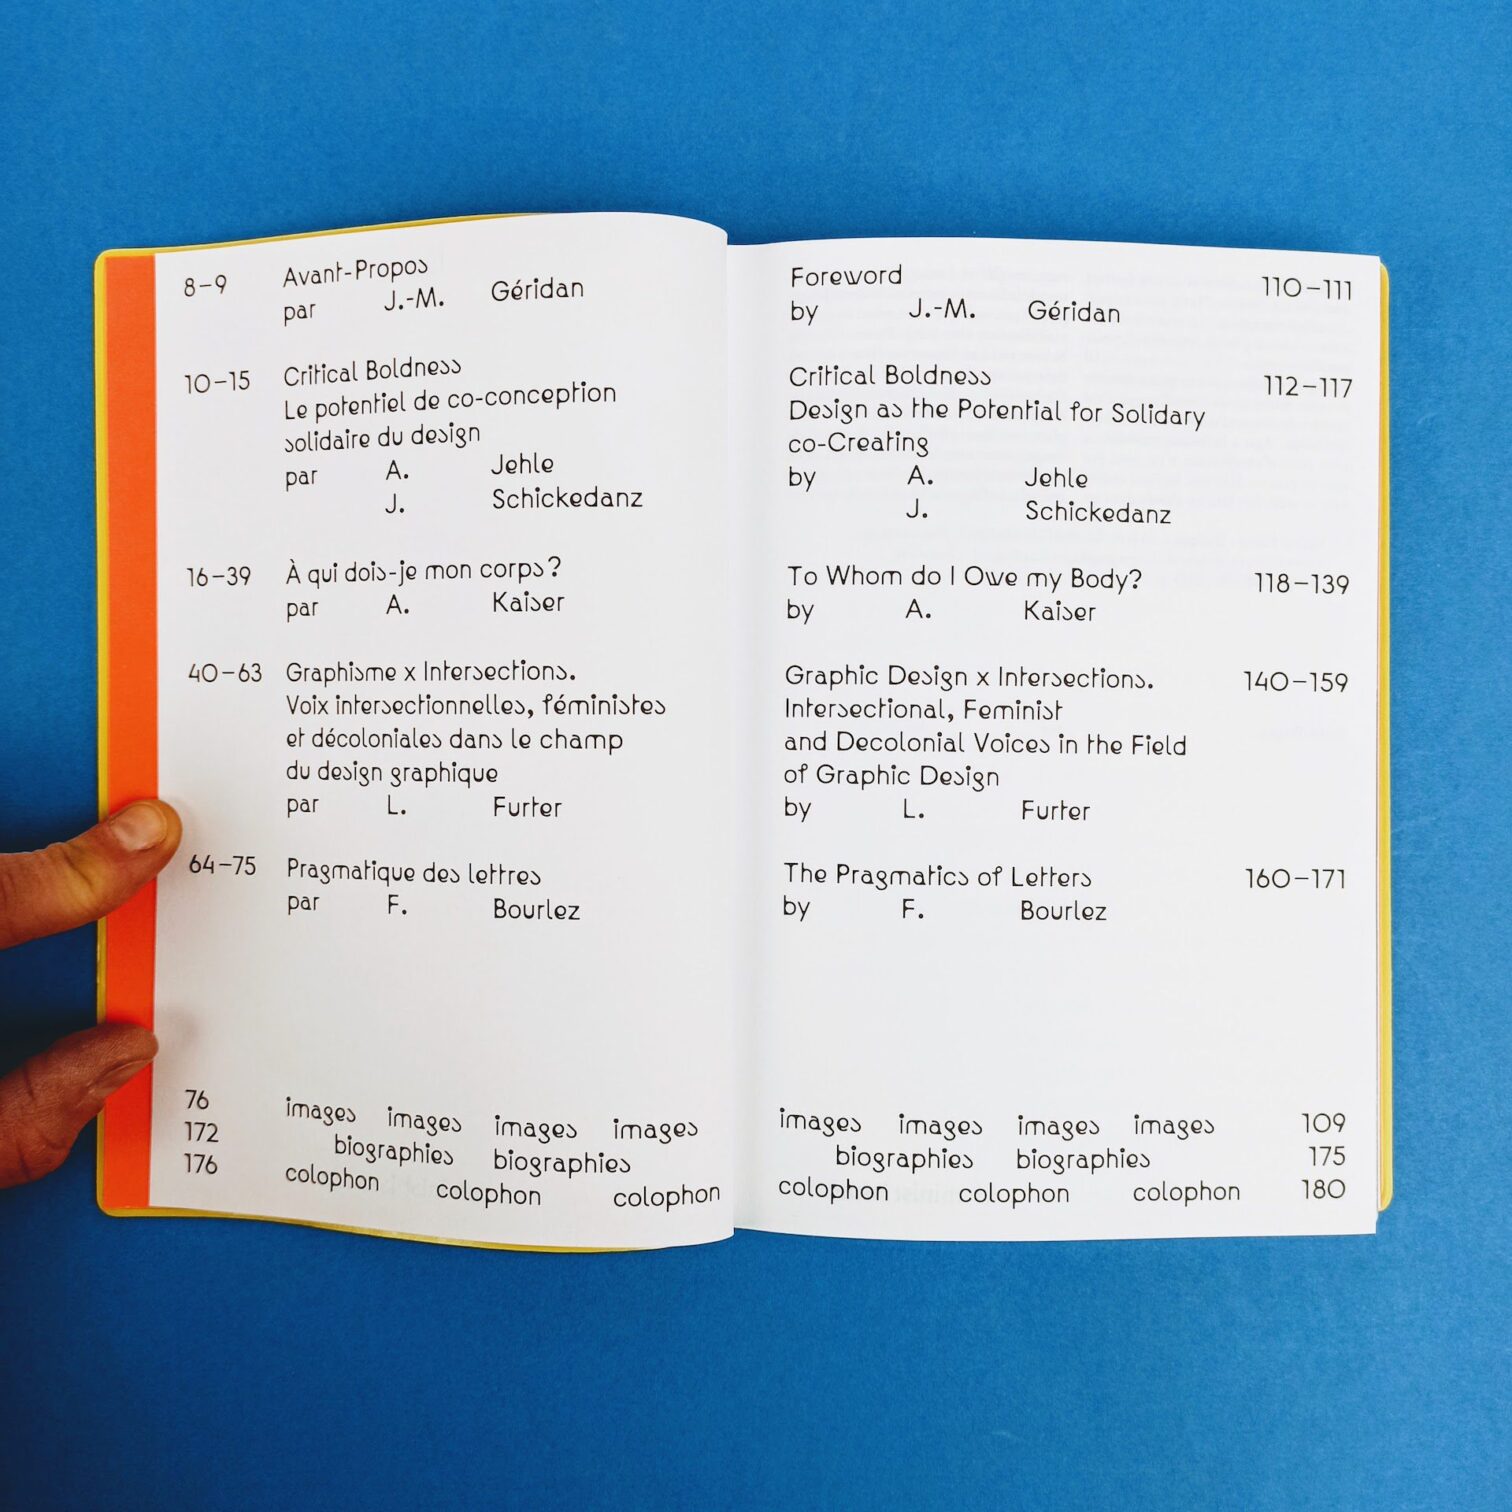 8–9 Avant-Propos
par J.-M. Géridan
10–15 Critical Boldness
Le potentiel de co-conception
solidaire du design
par A. Jehle
J. Schickedanz
16–39 À qui dois-je mon corps?
par A. Kaiser
40–63 Graphisme x Intersections.
Voix intersectionnelles, féministes
et décoloniales dans le champ
du design graphique
par L. Furter
64–75 Pragmatique des lettres
par F. Bourlez
76 images images images images
172 biographies biographies
176 colophon colophon colophon
Foreword 110–111
by J.-M. Géridan
Critical Boldness 112–117
Design as the Potential for Solidary
co-Creating
by A. Jehle
J. Schickedanz
To Whom do I Owe my Body? 118–139
by A. Kaiser
Graphic Design x Intersections. 140–159
Intersectional, Feminist
and Decolonial Voices in the Field
of Graphic Design
by L. Furter
The Pragmatics of Letters 160–171
by F. Bourlez
images images images images 109
biographies biographies 175
colophon colophon colophon 180